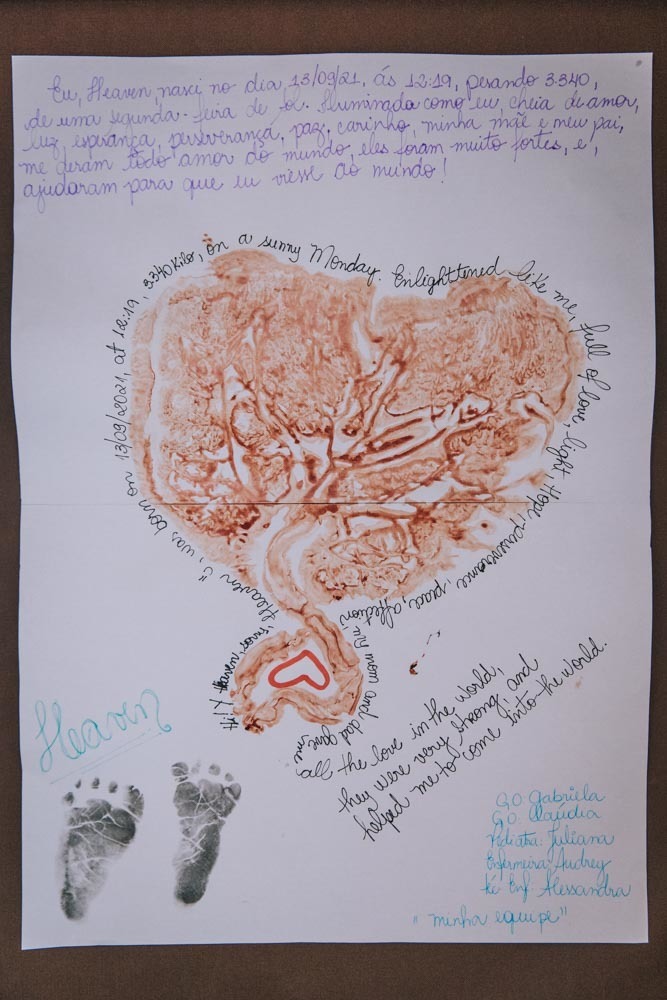 Eu, Heaven, nasci no dia, 13/09/21, ás 12:19, pesando 3.340,
de uma segunda-feira de sol. Iluminada como eu, cheia de amor,
luz, esperança, perseverança, paz, carinho, minha mãe e meu pai,
me deram todo amor do mundo, eles foram muito fortes, e,
ajudaram para que eu viesse ao mundo!
Heaven", was born on 13/09/2021, at 12:19, 3.340 Kilos, on a sunny Monday. Enlighttened like me, full of love, light, Hope perseverance, peace, affection,
my mom and dad gave me
all the love in the world,
they were very strong and
helped me to come into the world.
Heaven
GO Gabriela
GO. Claudia
Pediatra: Juliana
Enfermeira: Audrey
Enf: Alessandra
"minha equipe"